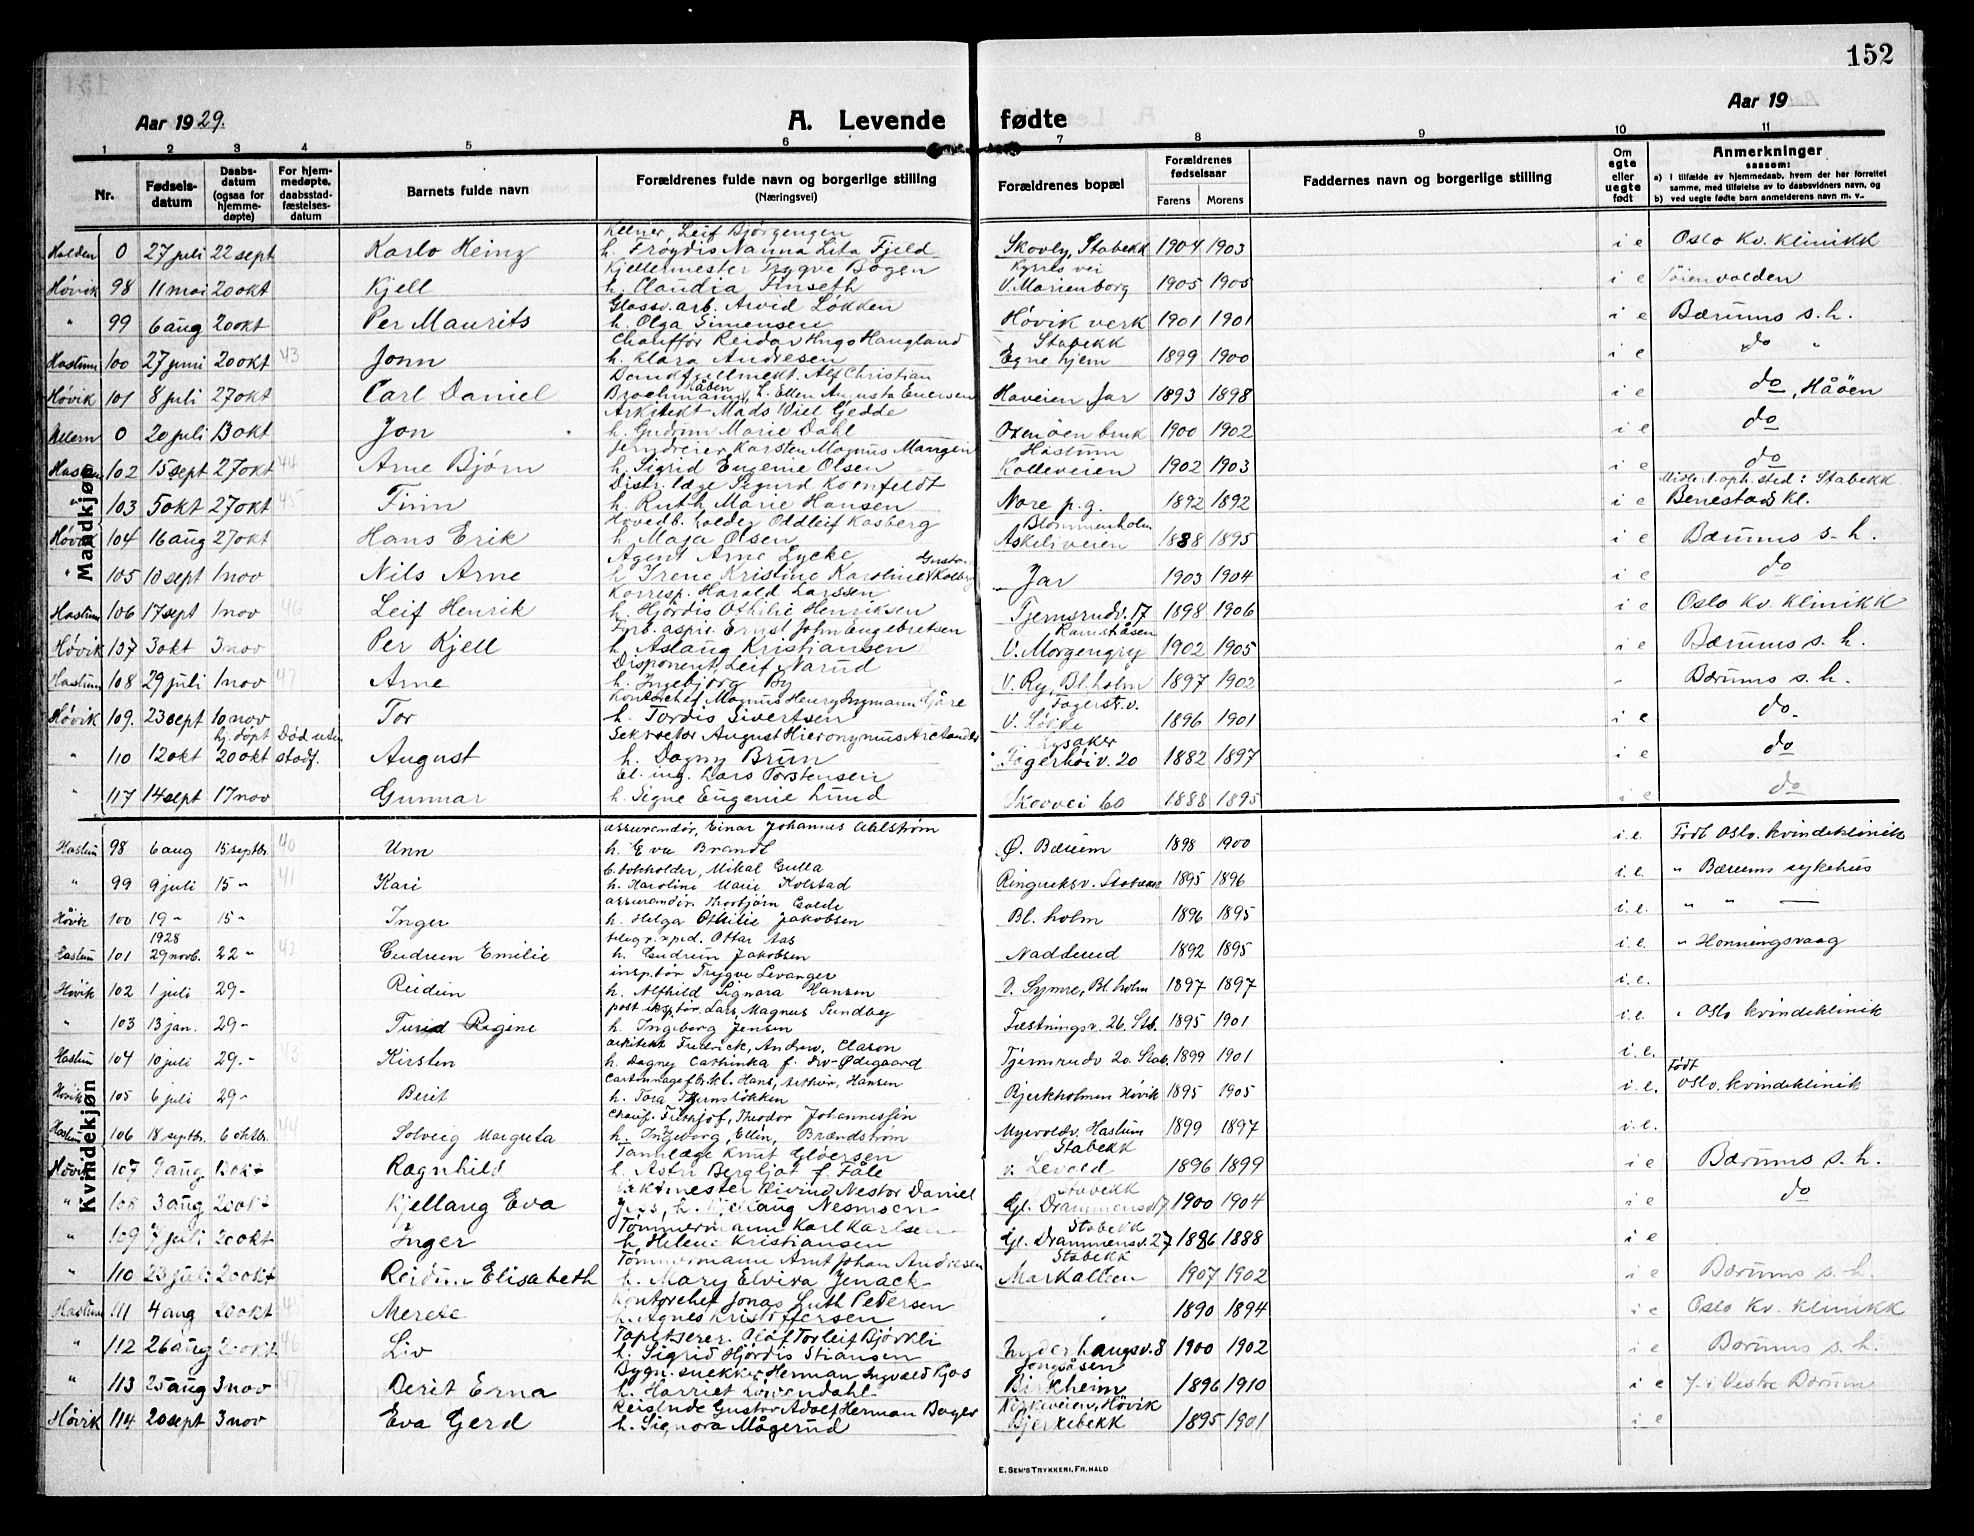 152
Aar 1929. A. Levende fødte Aar 19
1 2 3 4 5 6 7 8 9 10 11
Nr. Fødselsdatum Daabsdatum (ogsaa for hjemmedøpte) For hjemmedøpte, daabsstadfæstelsesdatum Barnets fulde navn Forældrenes fulde navn og borgerlige stilling (Næringsvei) Forældrenes bopæl Forældrenes fødselsaar Farens Morens Faddernes navn og borgerlige stilling Om egte eller uegte født Anmerkninger saasom: a) I tilfælde av hjemmedaab, hvem der har forrettet samme, med tilføielse av to daabsvidners navn, og b) ved uegte fødte barn anmelderens navn m. v.
Mandkjøn
0 27 juli 22 sept Karlo Heinz Kelner, Leif Bjørgengen h. Frøydis Nanna Lita Fjeld Skovly, Stabekk 1904 1903 i e Oslo Kv. klinikk
Høvik 98 11 mai 20 okt Kjell Kjellermester Trygve Bogen h. Claudia Finseth Kyrres vei V. Marienborg 1905 1905 i e
" 99 6 aug 20 okt Per Maurits Glassv. arb. Arvid Løkken h. Olga Simensen Høvik verk 1901 1901 i e Bærums s. h.
Haslum 100 27 juni 20 okt 43 Jonn Chauffør Reidar Hugo Haugland h. Klara Andresen Stabekk Egne hjem 1899 1900 i e do "
Høvik 101 8 juli 27 okt Carl Daniel Alf Christian Brochmann, h. Ellen Augusta Evensen Haveien Jar 1893 1898 i e do, Håøen
0 20 juli 13 okt Jon Arkitekt Mads Wiel Gedde h. Gudrun Marie Dahl Oxenøen bruk 1900 1902 i e do
Haslum 102 15 sept 27 okt 44 Arne Bjørn Jerndreier Karsten Magnus Mangen h. Sigrid Eugenie Olsen Haslum Kolleveien 1902 1903 i e do
" 103 5 okt 27 okt 45 Finn Distr. læge Sigurd Koenfeldt h. Ruth Marie Hansen Nore p.g. 1892 1892 i e Midlert. oph. sted: Stabekk Benestads kl.
Høvik 104 16 aug 27 okt Hans Erik Hovedb. holder Oddleif Kasberg h. Maja Olsen Blommenholm Askeliveien 1888 1895 i e Bærums s. h.
" 105 10 sept 1 nov Nils Arne Agent Arne Lycke h. Irene Kristine Karoline Jar 1903 1904 i e do
Haslum 106 17 sept 1 nov 46 Leif Henrik Korresp. Harald Larssen h. Hjørdis Othilie Henriksen Tjernsrudv. 17 1898 1906 i e Oslo Kv. klinikk
Høvik 107 3 okt 3 nov Per Kjell Forb. aspir. Ernst John Engebretsen h. Aslaug Kristiansen Ramstadåsen V. Morgengry 1902 1905 i e Bærums s. h.
Haslum 108 29 juli 1 nov 47 Arne Disponent Leif Narud h. Ingebjorg By V. Ry, Bl. holm 1897 1902 Bærums s. h.
Høvik 109. 23 sept 10 nov Tor Kontorchef Magnus Henry Ingmann h. Tordis Sivertsen Fagerst. v. V. Løkke 1896 1901 i e do
" 110 12 okt hj. døpt 20 okt Død uten stadf. August Sekretær August Hieronymus h. Dagny Brun Lysaker Fagerhøiv. 20 1882 1897 i e do
" 117 14 sept 17 nov Gunnar El. ing. Lars Torstensen h. Signe Eugenie Lund Skovvei 60 1888 1895 i e do
Kvindekjøn
Haslum 98 6 aug 15 septbr. 40 Unn assurandør, Einar Johannes Ahlstrøm h. Eva Brandt Ø. Bærum 1898 1900 i.e. Født Oslo. kvindeklinik
" 99 9 juli 15 " 41 Kari b. bokholder, Mikal Gulla h. Karoline Marie Kolstad Ringveksv. Stabæk 1895 1896 i.e. " Bærums sykehus
Høvik 100 19 " 15 " Inger assurandør. Thorbjørn h. Helga Othilie Jakobsen Bl. holm 1896 1895 i.e. " " —
Haslum 101 1928 29 novb. 22 " 42 Gudrun Emilie telegr. exped. Ottar Aas h. Gudrun Jakobsen Nadderud 1892 1895 i.e. " Honningsvaag
Høvik 102 1 juli 29- Reidun inspektør Trygve Levanger h. Alfhild Signora Hansen V. Symre, Bl. holm 1897 1897 i.e.
" 103 13 jan. 29- Turid Regine h. Ingeborg Jensen Fæstningsv. 26. Stb. 1895 1901 i.e. " Oslo kvindeklinik
Haslum 104 10 juli 29.- 43 Kirsten arkitekt Fredrick, Andrew, Clason h. Dagny Cathinka f. Ødegaard Tjernsrudv 20. Stab. 1899 1901 i.e.
Høvik 105 6 juli 29- Berit Hans, Arthur, Hansen h. Tora Bjerkholmen Høvik 1895 1905 i.e. Født Oslo. kvindeklinik
Haslum 106 18 septbr. 6 oktbr. 44 Solveig Margreta Chauf. Fritjof, Theodor Johannessen h. Ingeborg, Ellen, Brændstrøm Myrvoldv. Haslum 1899 1897 i.e.
Høvik 107 9 aug 13 okt Ragnhild Tannlæge Knut Gløersen h. Astri Bergljot f. Fåle Stabekk v. Levold 1896 1899 i e Bærums s. h.
" 108 3 aug 20 okt Kjellaug Eva Eivind Nestor Daniel h. Kjellaug Nesmoen Stabekk Gl. Drammensv. 1900 1904 i e do
" 109 7 juli 20 okt Inger Tømmermann Karl Karlsen h. Helene Kristiansen Stabekk Gl. Drammensv. 27 1886 1888 i e
" 110 23 juli 20 okt Reidun Elisabeth Tømmermann Arnt Johan Andresen h. Mary Elvira Jenack Stabekk Markalleen 1907 1902 i e Bærums s. h.
Haslum 111 4 aug 20 okt 45 Merete Kontorchef Jonas Luth Petersen h. Agnes Kristoffersen 1890 1894 i e Oslo Kv. klinikk
" 112 26 aug 20 okt 46 Liv Tapetserer. Olaf Torleif Bjørkli h. Sigrid Hjördis Stiansen 1900 1902 i e Bærums s. h.
" 113 25 aug 3 nov 47 Berit Erna Bygn. snekker Herman Ingvald Fjos h. Harriet Løvendahl Jongsåsen Birkheim 1896 1910 i e f. i Vestre Bærum
Høvik 114 20 sept 3 nov Eva Gerd Reisende Gustav Adolf Herman Bager h. Signora Mågerud Kirkeveien, Høvik Bjerkebekk 1895 1901 i e
E. SEM'S TRYKKERI, FR. HALD